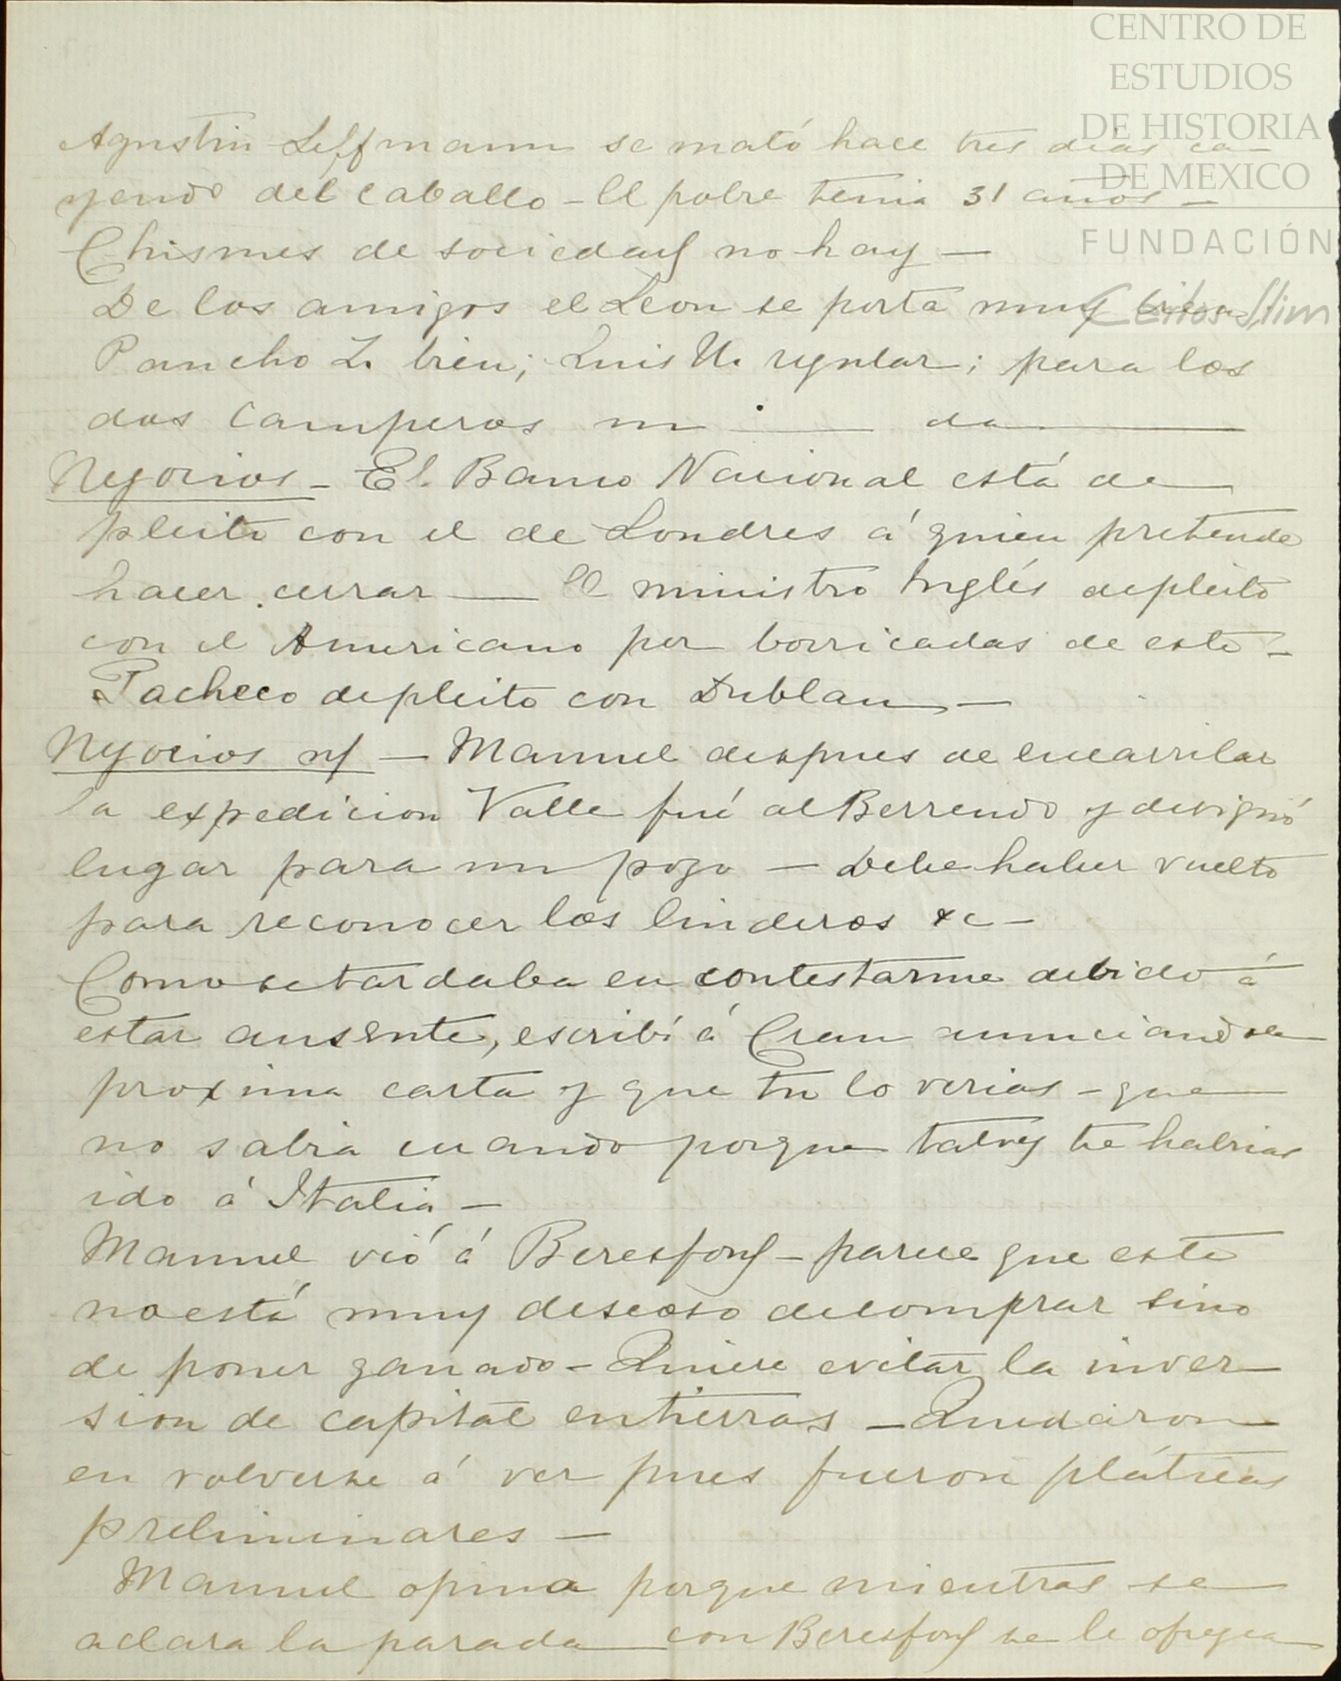 CENTRO DE
ESTUDIOS
DE HISTORIA
DE MEXICO
FUNDACIÓN
Carlos Slim
Agustin Leffmann se mató hace tres dias ca-
yendo del caballo - El pobre tenia 31 años -
Chismes de sociedad no hay -
De los amigos el Leon se porta muy bien,
Pancho L. bien; Luis U. regular; para los
dos camperos
Negocios - El Banco Nacional está de
pleito con el de Londres á quien pretende
hacer cerrar — El ministro Inglés de pleito
con el Americano por borricadas de este -
Pacheco de pleito con Dublan -
Negocios — Manuel despues de encarrilar
la expedicion Valle fué al Berrendo y designó
lugar para un pozo — Debe haber vuelto
para reconocer los linderos &c -
Como se tardaba en contestarme debido á
estar ausente, escribí á Cram anunciandole
proxima carta y que tu lo verias - que
no sabia cuando porque talvez te habrias
ido á Italia -
Manuel vió á Beresford - parece que este
no está muy deseoso de comprar sino
de poner ganado - Quiere evitar la inver-
sion de capital en tierras - Quedaron
en volverse á ver pues fueron pláticas
preliminares —
Manuel opina porque mientras se
aclara la parada con Beresford se le ofrezca